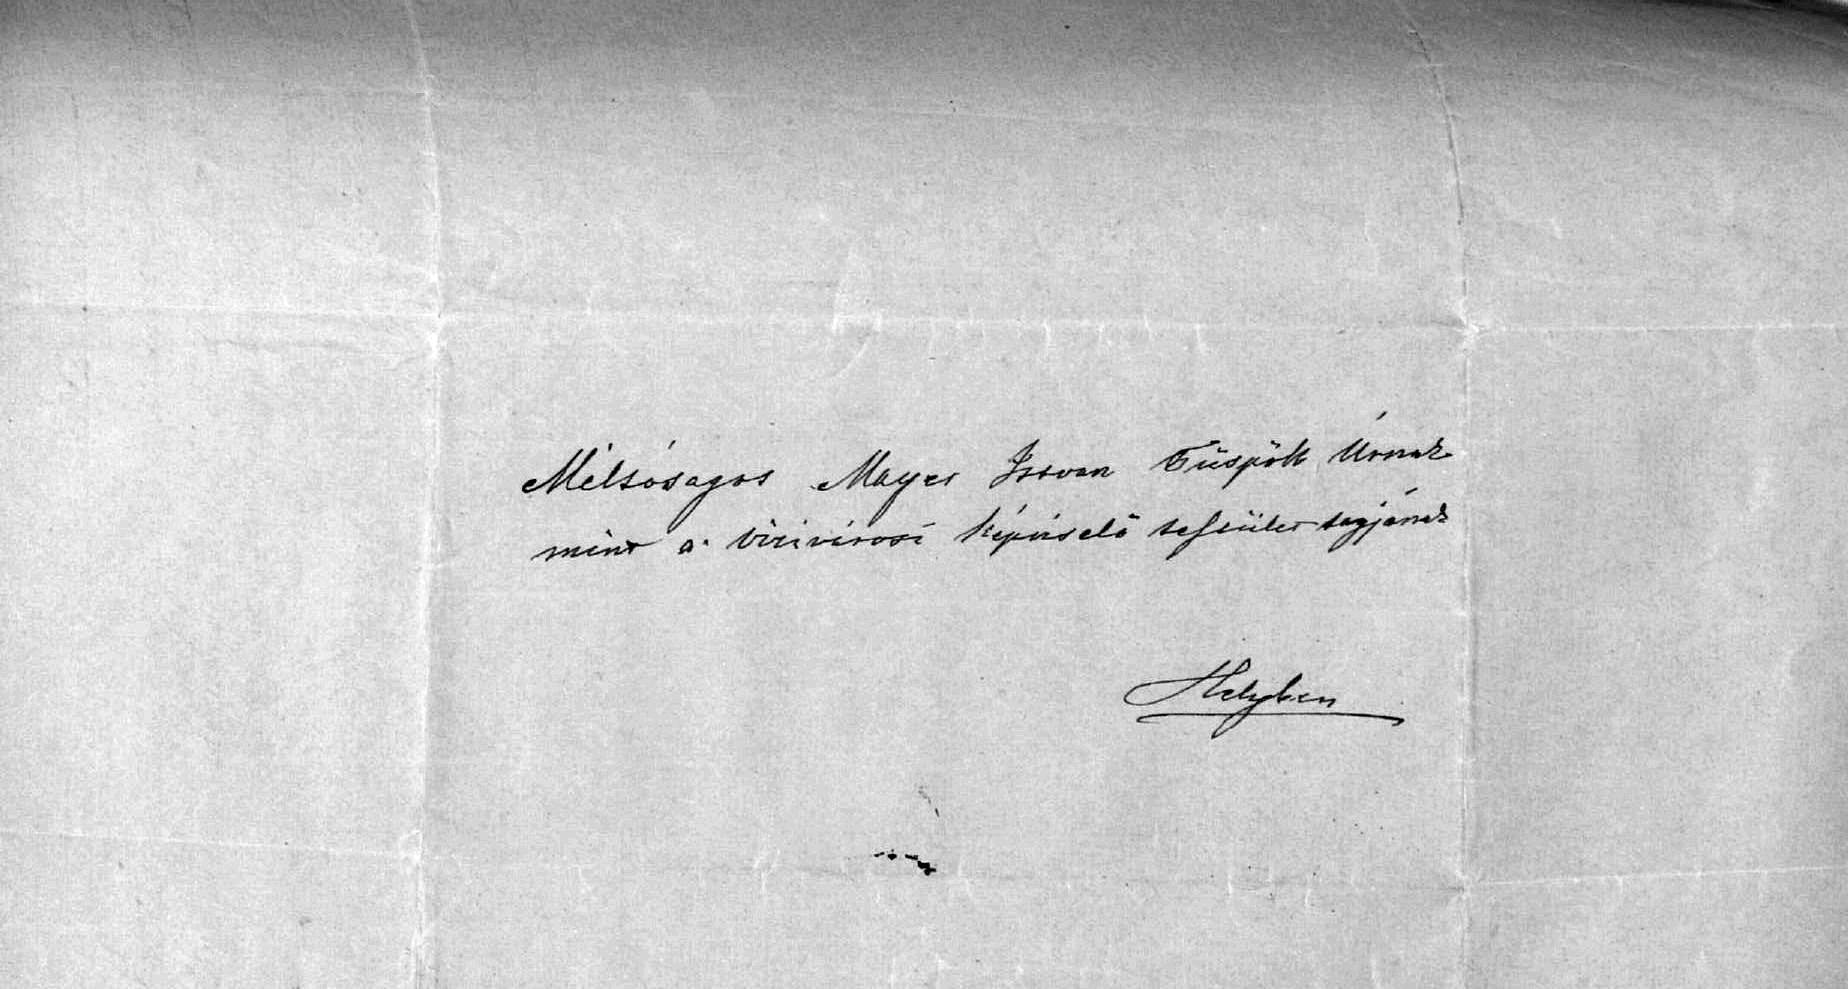 Méltóságos Mayer Istvan Püspök Úrnak
mint a vizivárosi képviselő testület tagjának
Helyben